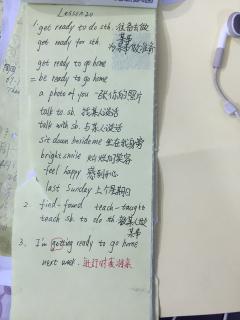 Lesson 20
1. get ready to do sth. 准备去做某事
get ready for sth. 为某事做准备
get ready to go home
= be ready to go home
a photo of you 一张你的照片
talk to sb. 找某人谈话
talk with sb. 与某人谈话
sit down beside me 坐在我身旁
bright smile 灿烂的笑容
feel happy 感到开心
last Sunday 上个星期日
2. find-found teach-taught
teach sb. to do sth. 教某人做某事
3. I'm getting ready to go home
next week. 进行时表将来